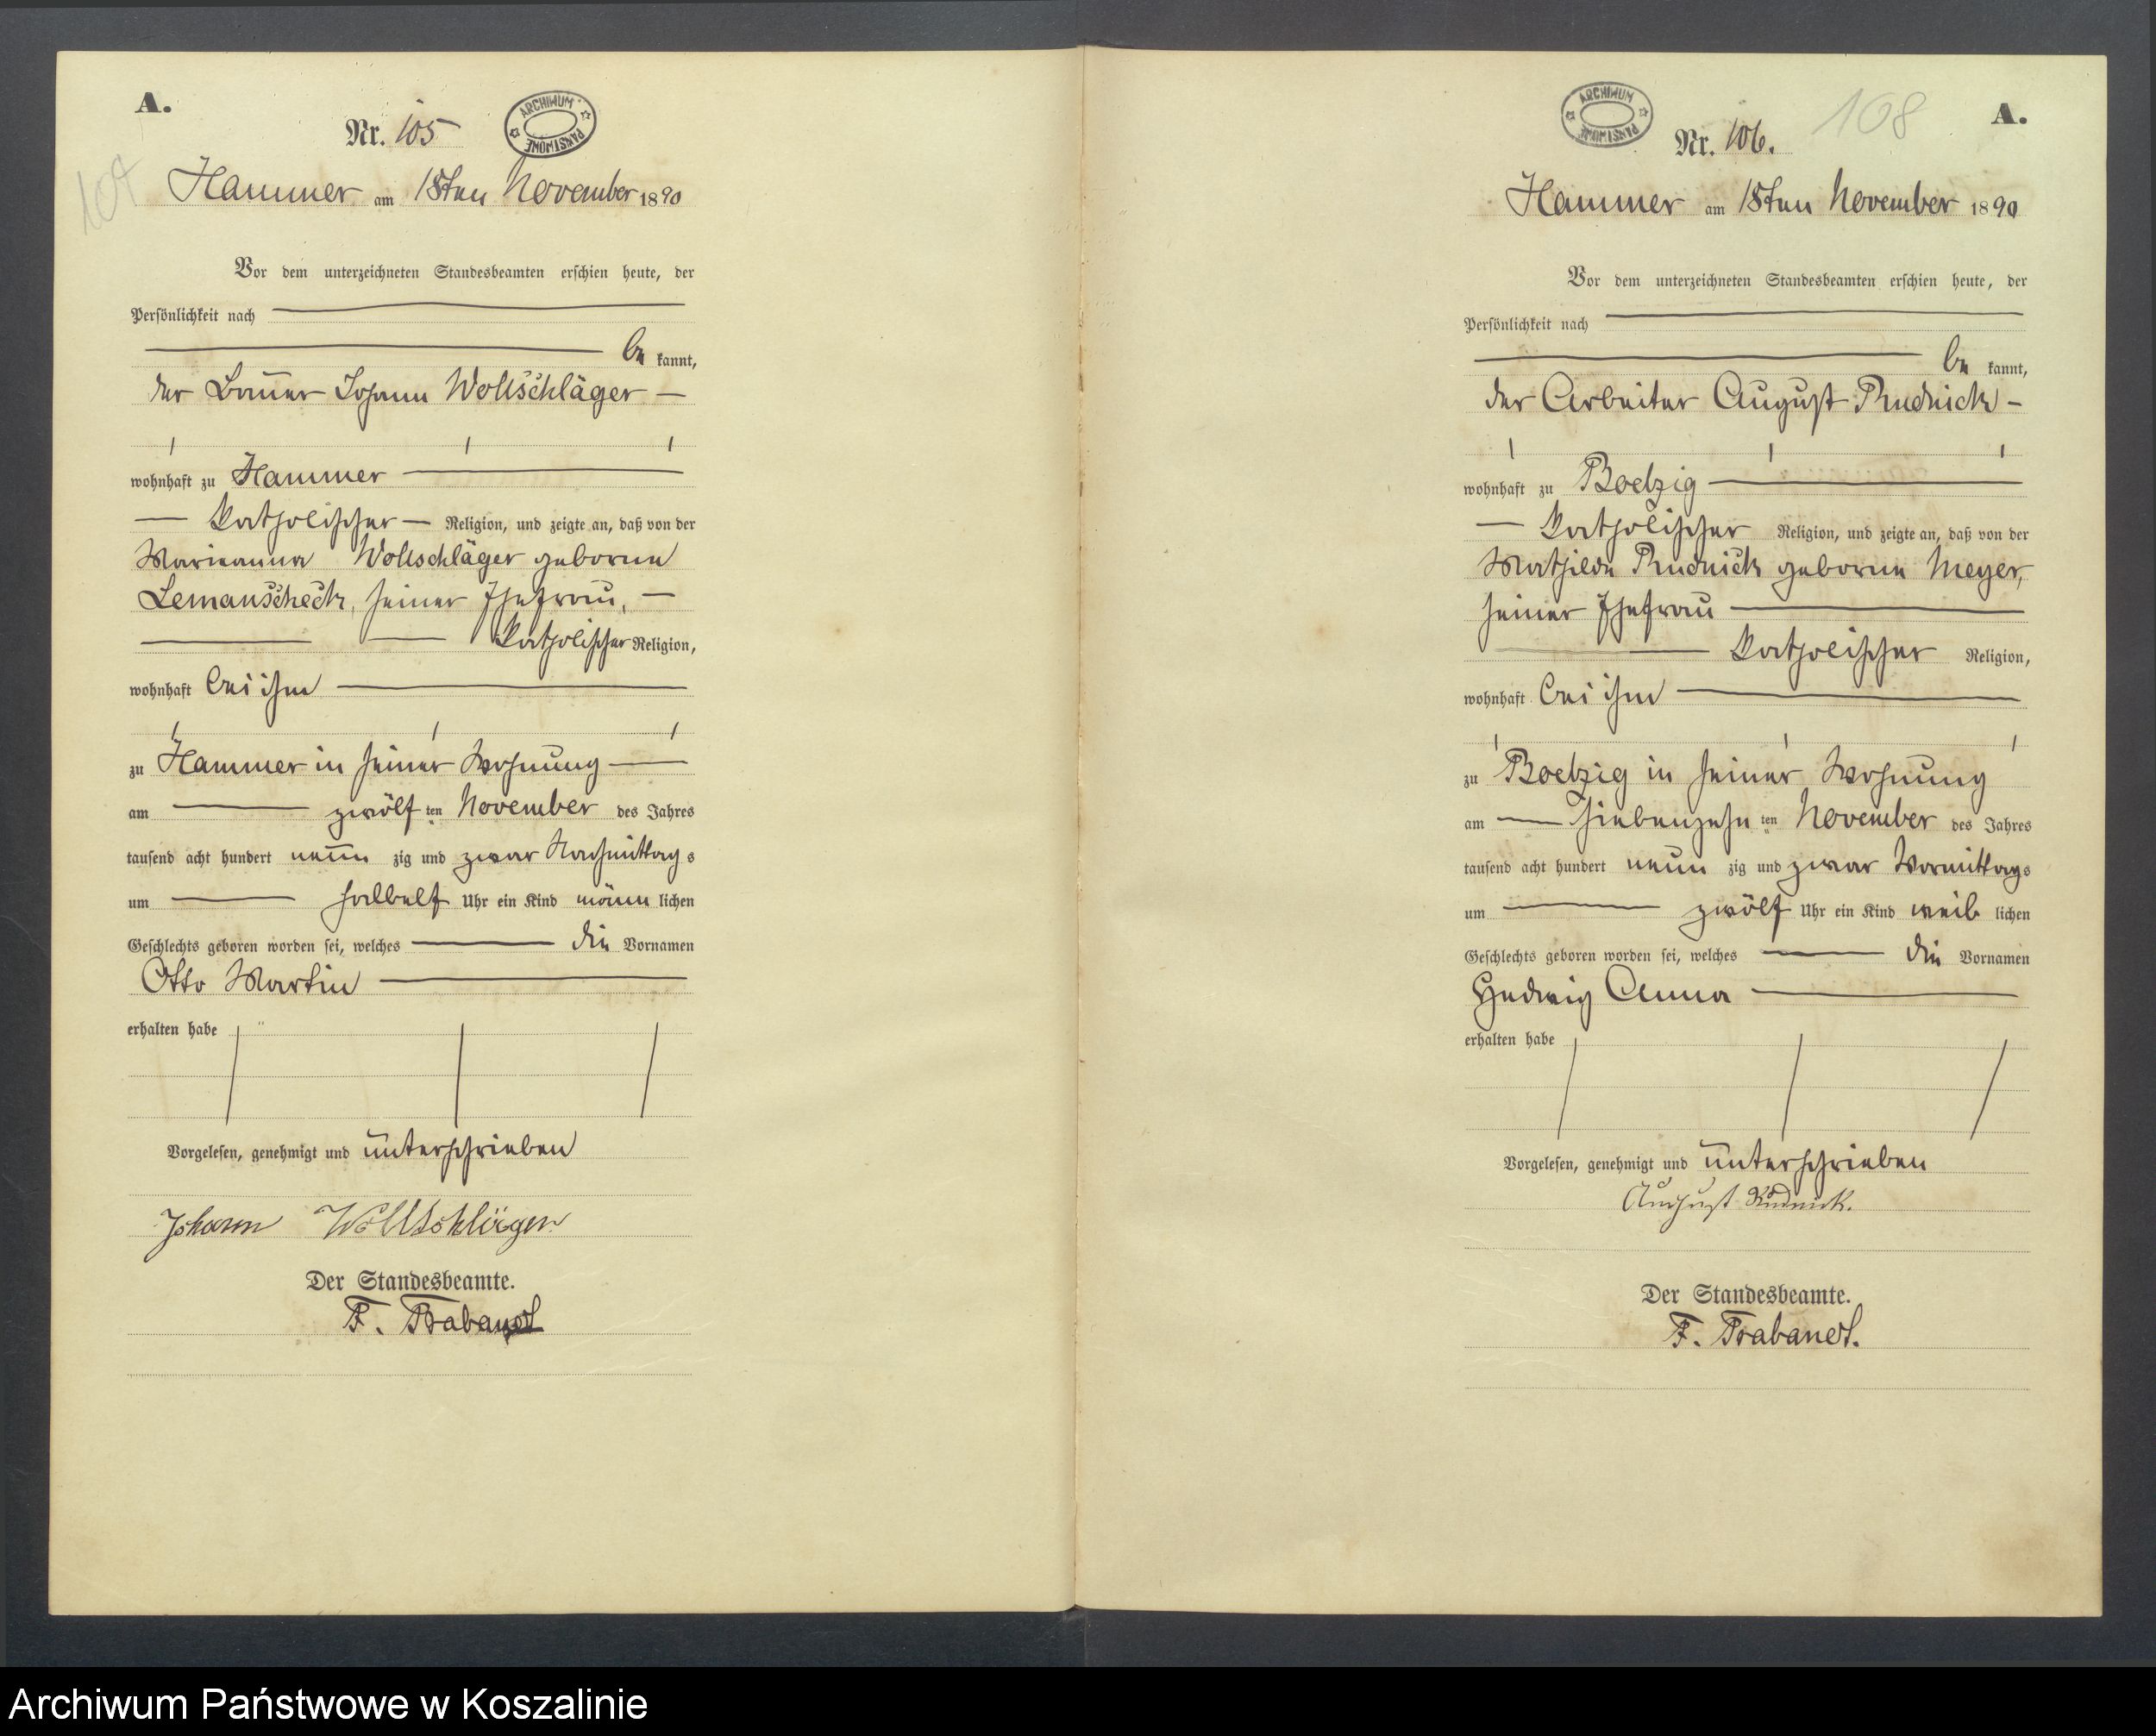 A.
Nr. 105
ARCHIWUM PAŃSTWOWE
107
Hammer am 18ten November 1890
Vor dem unterzeichneten Standesbeamten erschien heute, der
Persönlichkeit nach
be kannt,
der Bauer Johann Wollschläger
wohnhaft zu Hammer
katholischer Religion, und zeigte an, daß von der
Marianna Wollschläger geborne
Lemanscheck, seiner Ehefrau,
katholischer Religion,
wohnhaft bei ihm
zu Hammer in seiner Wohnung
am zwölf ten November des Jahres
tausend acht hundert neun zig und zwar Nachmittag s
um halbelf Uhr ein Kind männ lichen
Geschlechts geboren worden sei, welches die Vornamen
Otto Martin
erhalten habe
Vorgelesen, genehmigt und unterschrieben
Johann Wollschläger
Der Standesbeamte.
F. Brabandt
A.
ARCHIWUM PAŃSTWOWE
108
Nr. 106.
Hammer am 18ten November 1890
Vor dem unterzeichneten Standesbeamten erschien heute, der
Persönlichkeit nach
be kannt,
der Arbeiter August Rudnick
wohnhaft zu Boetzig
katholischer Religion, und zeigte an, daß von der
Mathilde Rudnick geborne Meyer,
seiner Ehefrau
katholischer Religion,
wohnhaft bei ihm
zu Boetzig in seiner Wohnung
am siebenzehn ten November des Jahres
tausend acht hundert neun zig und zwar Vormittags
um zwölf Uhr ein Kind weib lichen
Geschlechts geboren worden sei, welches die Vornamen
Hedwig Anna
erhalten habe
Vorgelesen, genehmigt und unterschrieben
August Rudnick.
Der Standesbeamte.
F. Brabandt.
Archiwum Państwowe w Koszalinie